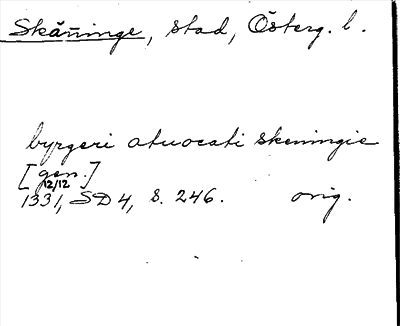 Skäninge, stad, Österg. l.
byrgeri atuocati skeningie
[gen.]
12/12
1331, SD 4, s. 246. orig.